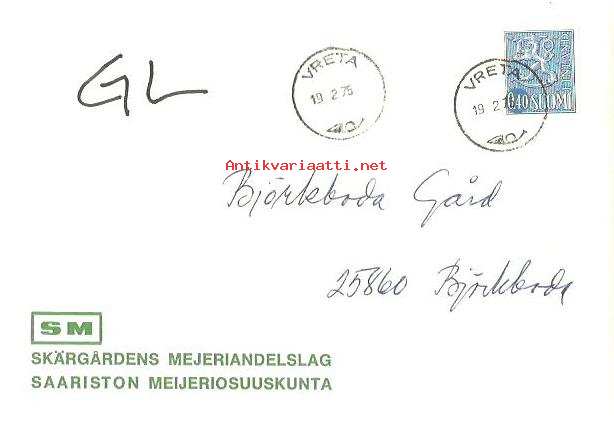 GL
VRETA
19 2 75
VRETA
19 2 7
0,40 SUOMI
Antikvariaatti.net
Björkboda Gård
25860 Björkboda
SM
SKÄRGÅRDENS MEJERIANDELSLAG
SAARISTON MEIJERIOSUUSKUNTA